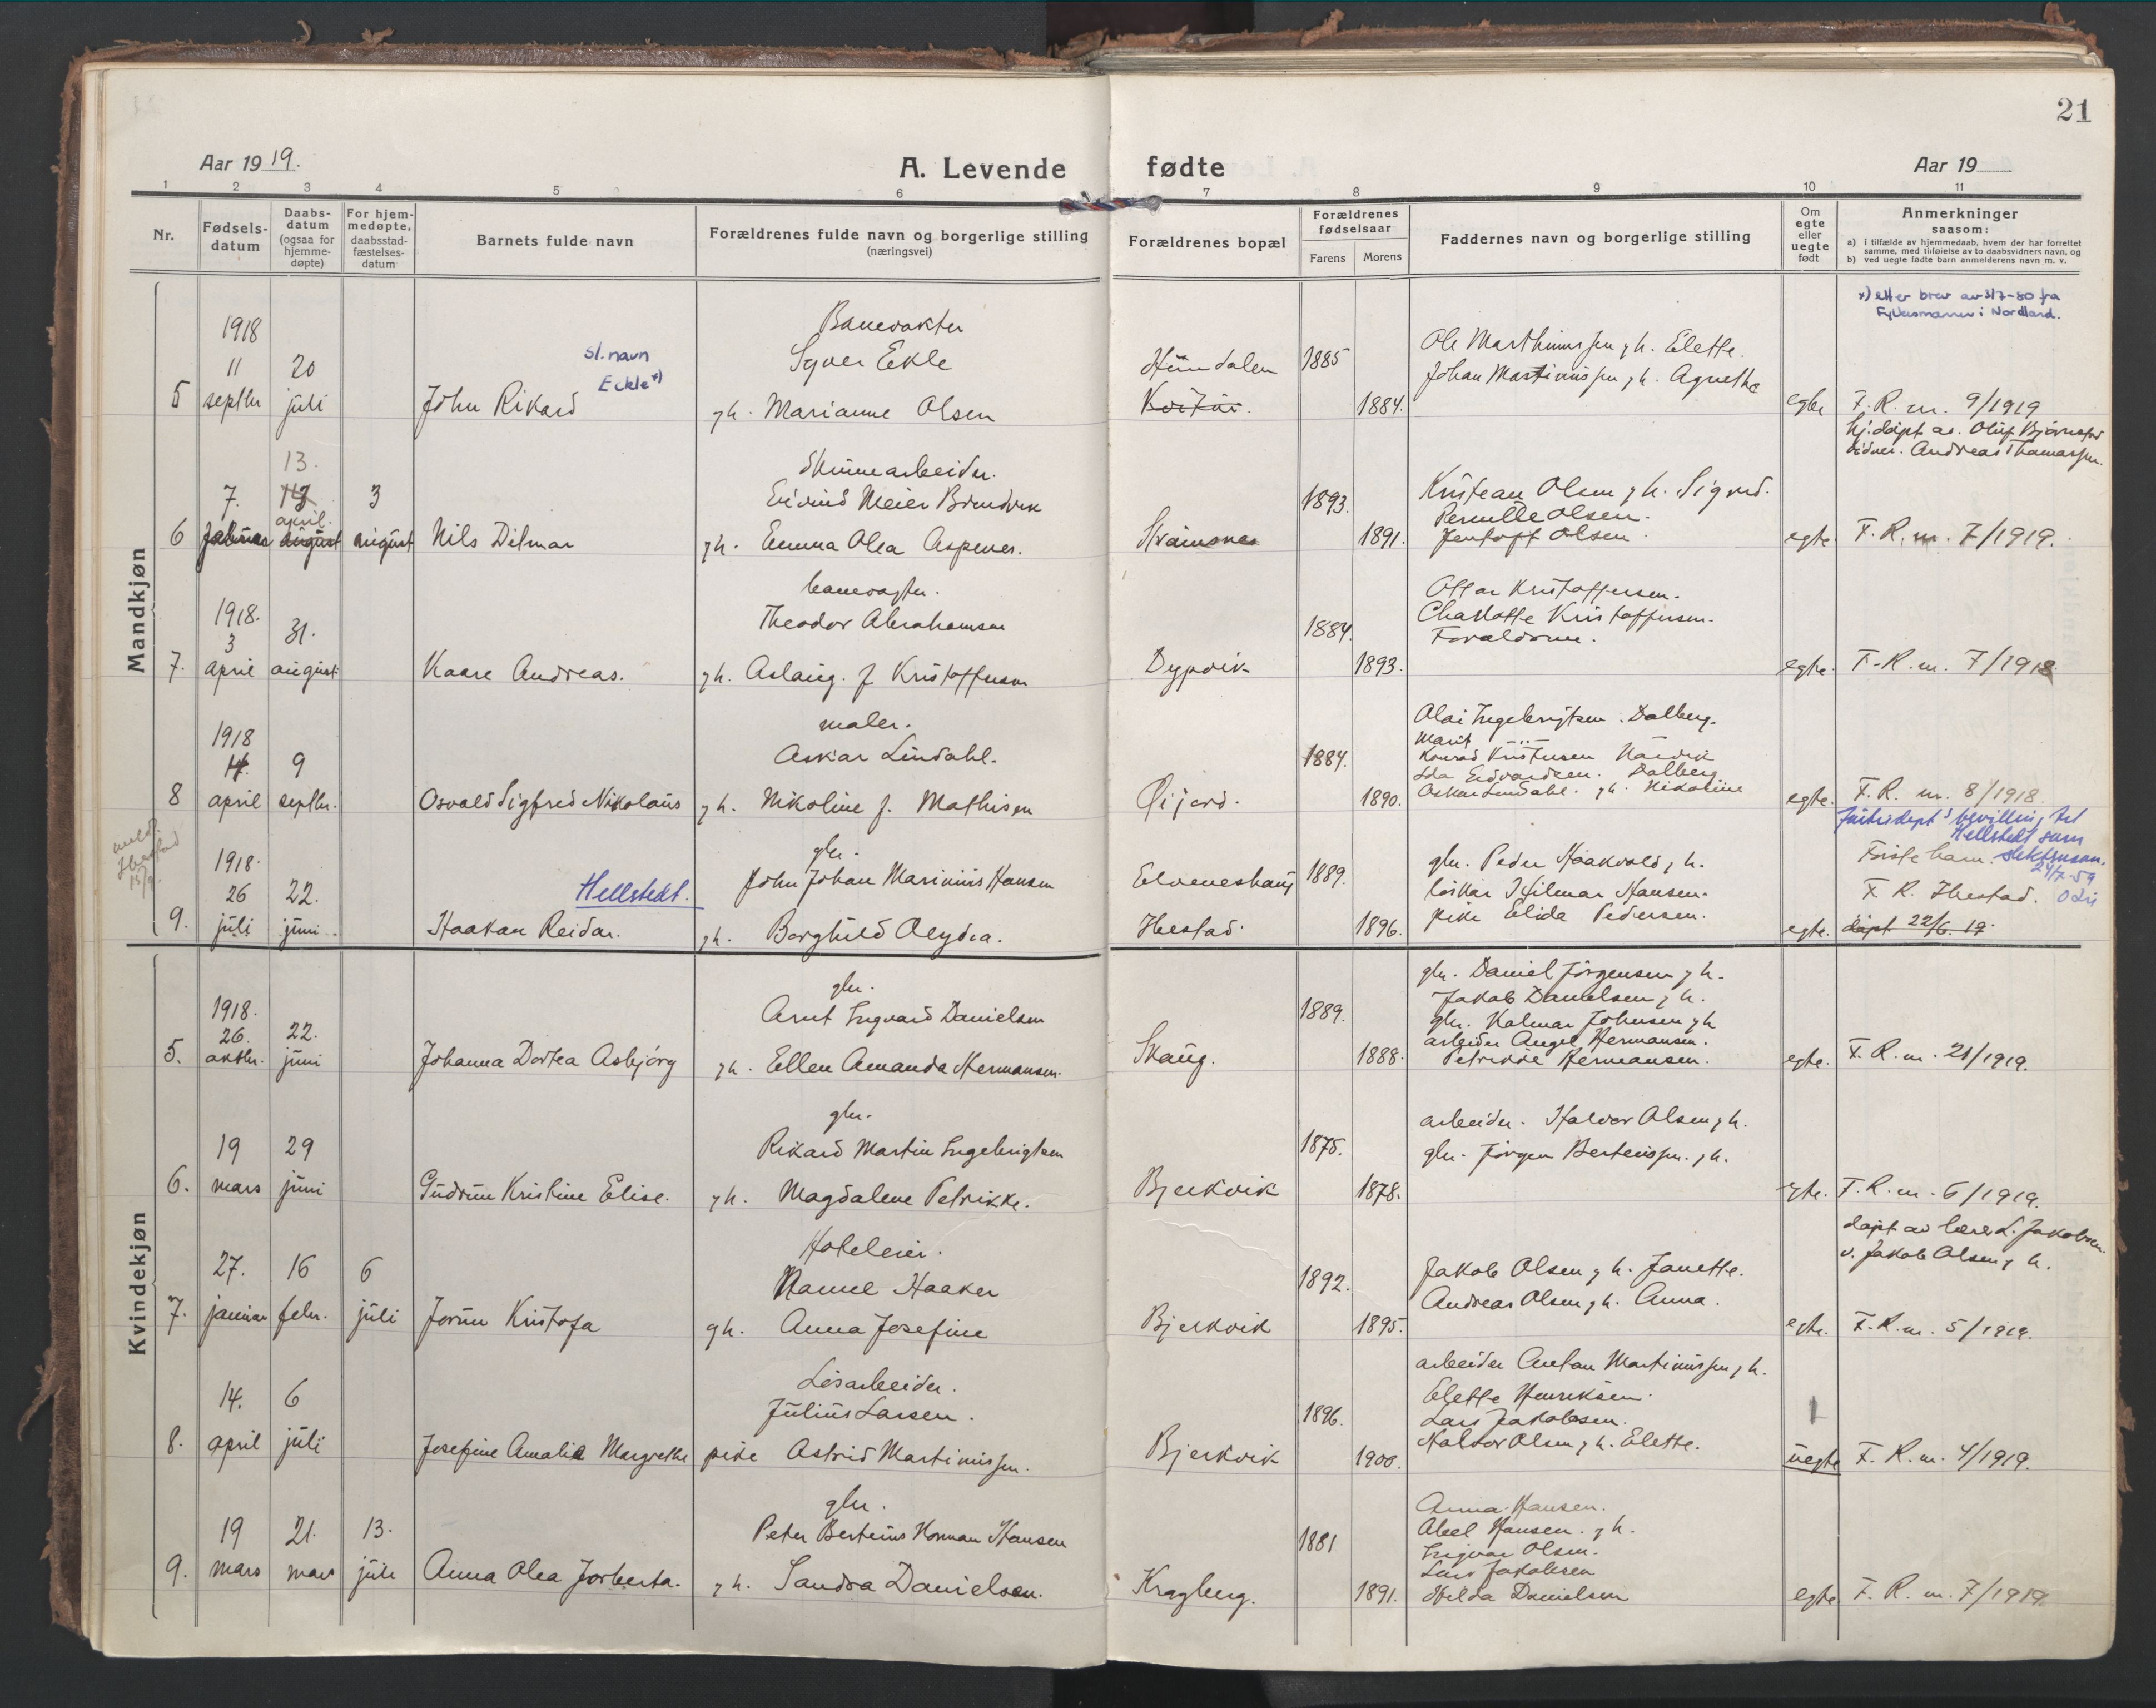 21
Aar 1919.
A. Levende fødte
Aar 19
1 2 3 4 5 6 7 8 9 10 11
Nr.
Fødsels-
datum
Daabs-
datum
(ogsaa for
hjemme-
døpte)
For hjem-
medøpte,
daabsstad-
fæstelses-
datum
Barnets fulde navn
Forældrenes fulde navn og borgerlige stilling
(næringsvei)
Forældrenes bopæl
Forældrenes
fødselsaar
Farens Morens
Faddernes navn og borgerlige stilling
Om
egte
eller
uegte
født
Anmerkninger
saasom:
a) i tilfælde av hjemmedaab, hvem der har forrettet
samme, med tilføielse av to daabsvidners navn, og
b) ved uegte fødte barn anmelderens navn m. v.
Mandkjøn
*) etter brev av 3/7-80 fra
Fylkesmannen i Nordland.
1918
11 20
5 septbr juli
John Rikard
sl. navn
Eckle *)
Banevokter
Syver Ekle
gh. Marianne Olsen
Hundalen
1885
1884.
Ole Marthinussen gh. Elette.
Johan Martinussen gh. Agnethe
egte
F. R. m. 9/1919
hj. døpt av Oluf Bjørnstad
vidner. Andreas Thomassen.
13.
7. 3
6 februar april. august
Nils Dilmar
Skinnearbeider.
Eivind Meier
gh. Emma Olea Aspenes.
1893.
1891.
Kristean Olsen gh. Sigrid.
Pernille Olsen.
Jentoft Olsen.
egte
F. R. m. 7/1919.
1918.
3 31.
7. april august
Kaare Andreas.
banevogter.
Theodor Abrahamsen
gh. Aslaug. f. Kristoffersen
Dypvik
1884.
1893.
Ottar Kristoffersen.
Charlotte Kristoffersen.
Forældrene.
egte.
F. R. m. 7/1918
1918
14. 9
8 april septbr.
Osvald Sigfred Nikolaus
maler.
Askar Lindahl.
gh. Nikoline f. Mathisen
Øijord.
1884.
1890.
Olai Ingebrigtsen. Dalberg.
Marit -"-
Konrad Kristensen Narvik
Ida Edvardsen. Dalberg
Oskar Lindahl. gh. Nikoline
egte.
F. R. m. 8/1918.
Justisdept's bevilling til
Hellstedt som
slektsnavn.
24/7-59
meld.
Ibestad
15/9.
1918.
26 22.
9. juli juni.
Haakan Reidar.
Hellstedt.
gbr.
John Johan Marinius Hansen
gh. Borghild Olydia.
Elveneshaug
Ibestad.
1889.
1896.
gbr. Peder Haakvold gh.
Hilmar Hansen.
pike Elida Pedersen.
egte.
Første barn.
F. R. Ibestad.
døpt 22/6. 19.
Kvindekjøn
1918.
26. 22.
5. oktbr. juni
Johanna Dortea Asbjørg
gbr.
Arnt Ingvard Danielsen
gh. Ellen Amanda Hermansen.
Skaug.
1889.
1888.
gbr. Daniel Jörgensen gh.
Jakob Danielsen gh.
gbr. Kalmar Johnsen gh
arbeider Angel Hermansen.
Petrikke Hermansen.
egte.
F. R. m. 21/1919.
19 29
6. mars juni
Gudrun Kristine Elise.
gbr.
Rikard Martin Ingebrigtsen
gh. Magdalene Petrikke.
Bjerkvik
1875.
1878.
arbeider. Halvor Olsen gh.
gbr. Jørgen Berteussen. gh.
egte.
F. R. m. 6/1919.
døpt av lærer L. Jakobsen
v. Jakob Olsen gh.
27. 16 6
7. januar febr. juli
Jorun Kristofa
Hoteleier.
Hamel Haaker
gh. Anna Josefine
Bjerkvik
1892.
1895.
Jakob Olsen gh. Janette.
Andreas Olsen gh. Anna.
egte.
F. R. m. 5/1919.
14. 6
8. april juli
Josefine Amalie Margrethe
Løsarbeider.
Julius Larsen.
pike Astrid Martinussen.
Bjerkvik
1896.
1900.
arbeider Anton Martinussen gh.
Elette Henriksen.
Lars Jakobsen.
Halvor Olsen gh. Elette.
uegte
F. R. m. 4/1919.
19 21. 13.
9. mars mars juli
Anna Olea Jorberta.
gbr.
Peter Berteus Norman Hansen
gh. Sandra Danielsen.
Kragberg.
1881
1891.
Anna Hansen.
Abel Hansen. gh.
Ingvar Olsen.
Lars Jakobsen
Hilda Danielsen
egte
F. R. m. 7/1919.